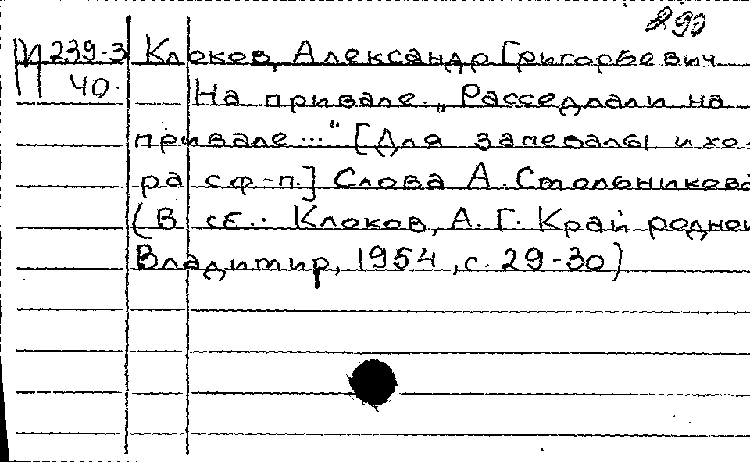 290
П 239-3 Клоков, Александр Григорьевич
40. На привале. „Расседлали на
привале..." [Для запевалы и хо-
ра с ф-п.] Слова А. Стольникова
(В сб.: Клоков, А. Г. Край родной
Владимир, 1954, с. 29-30)